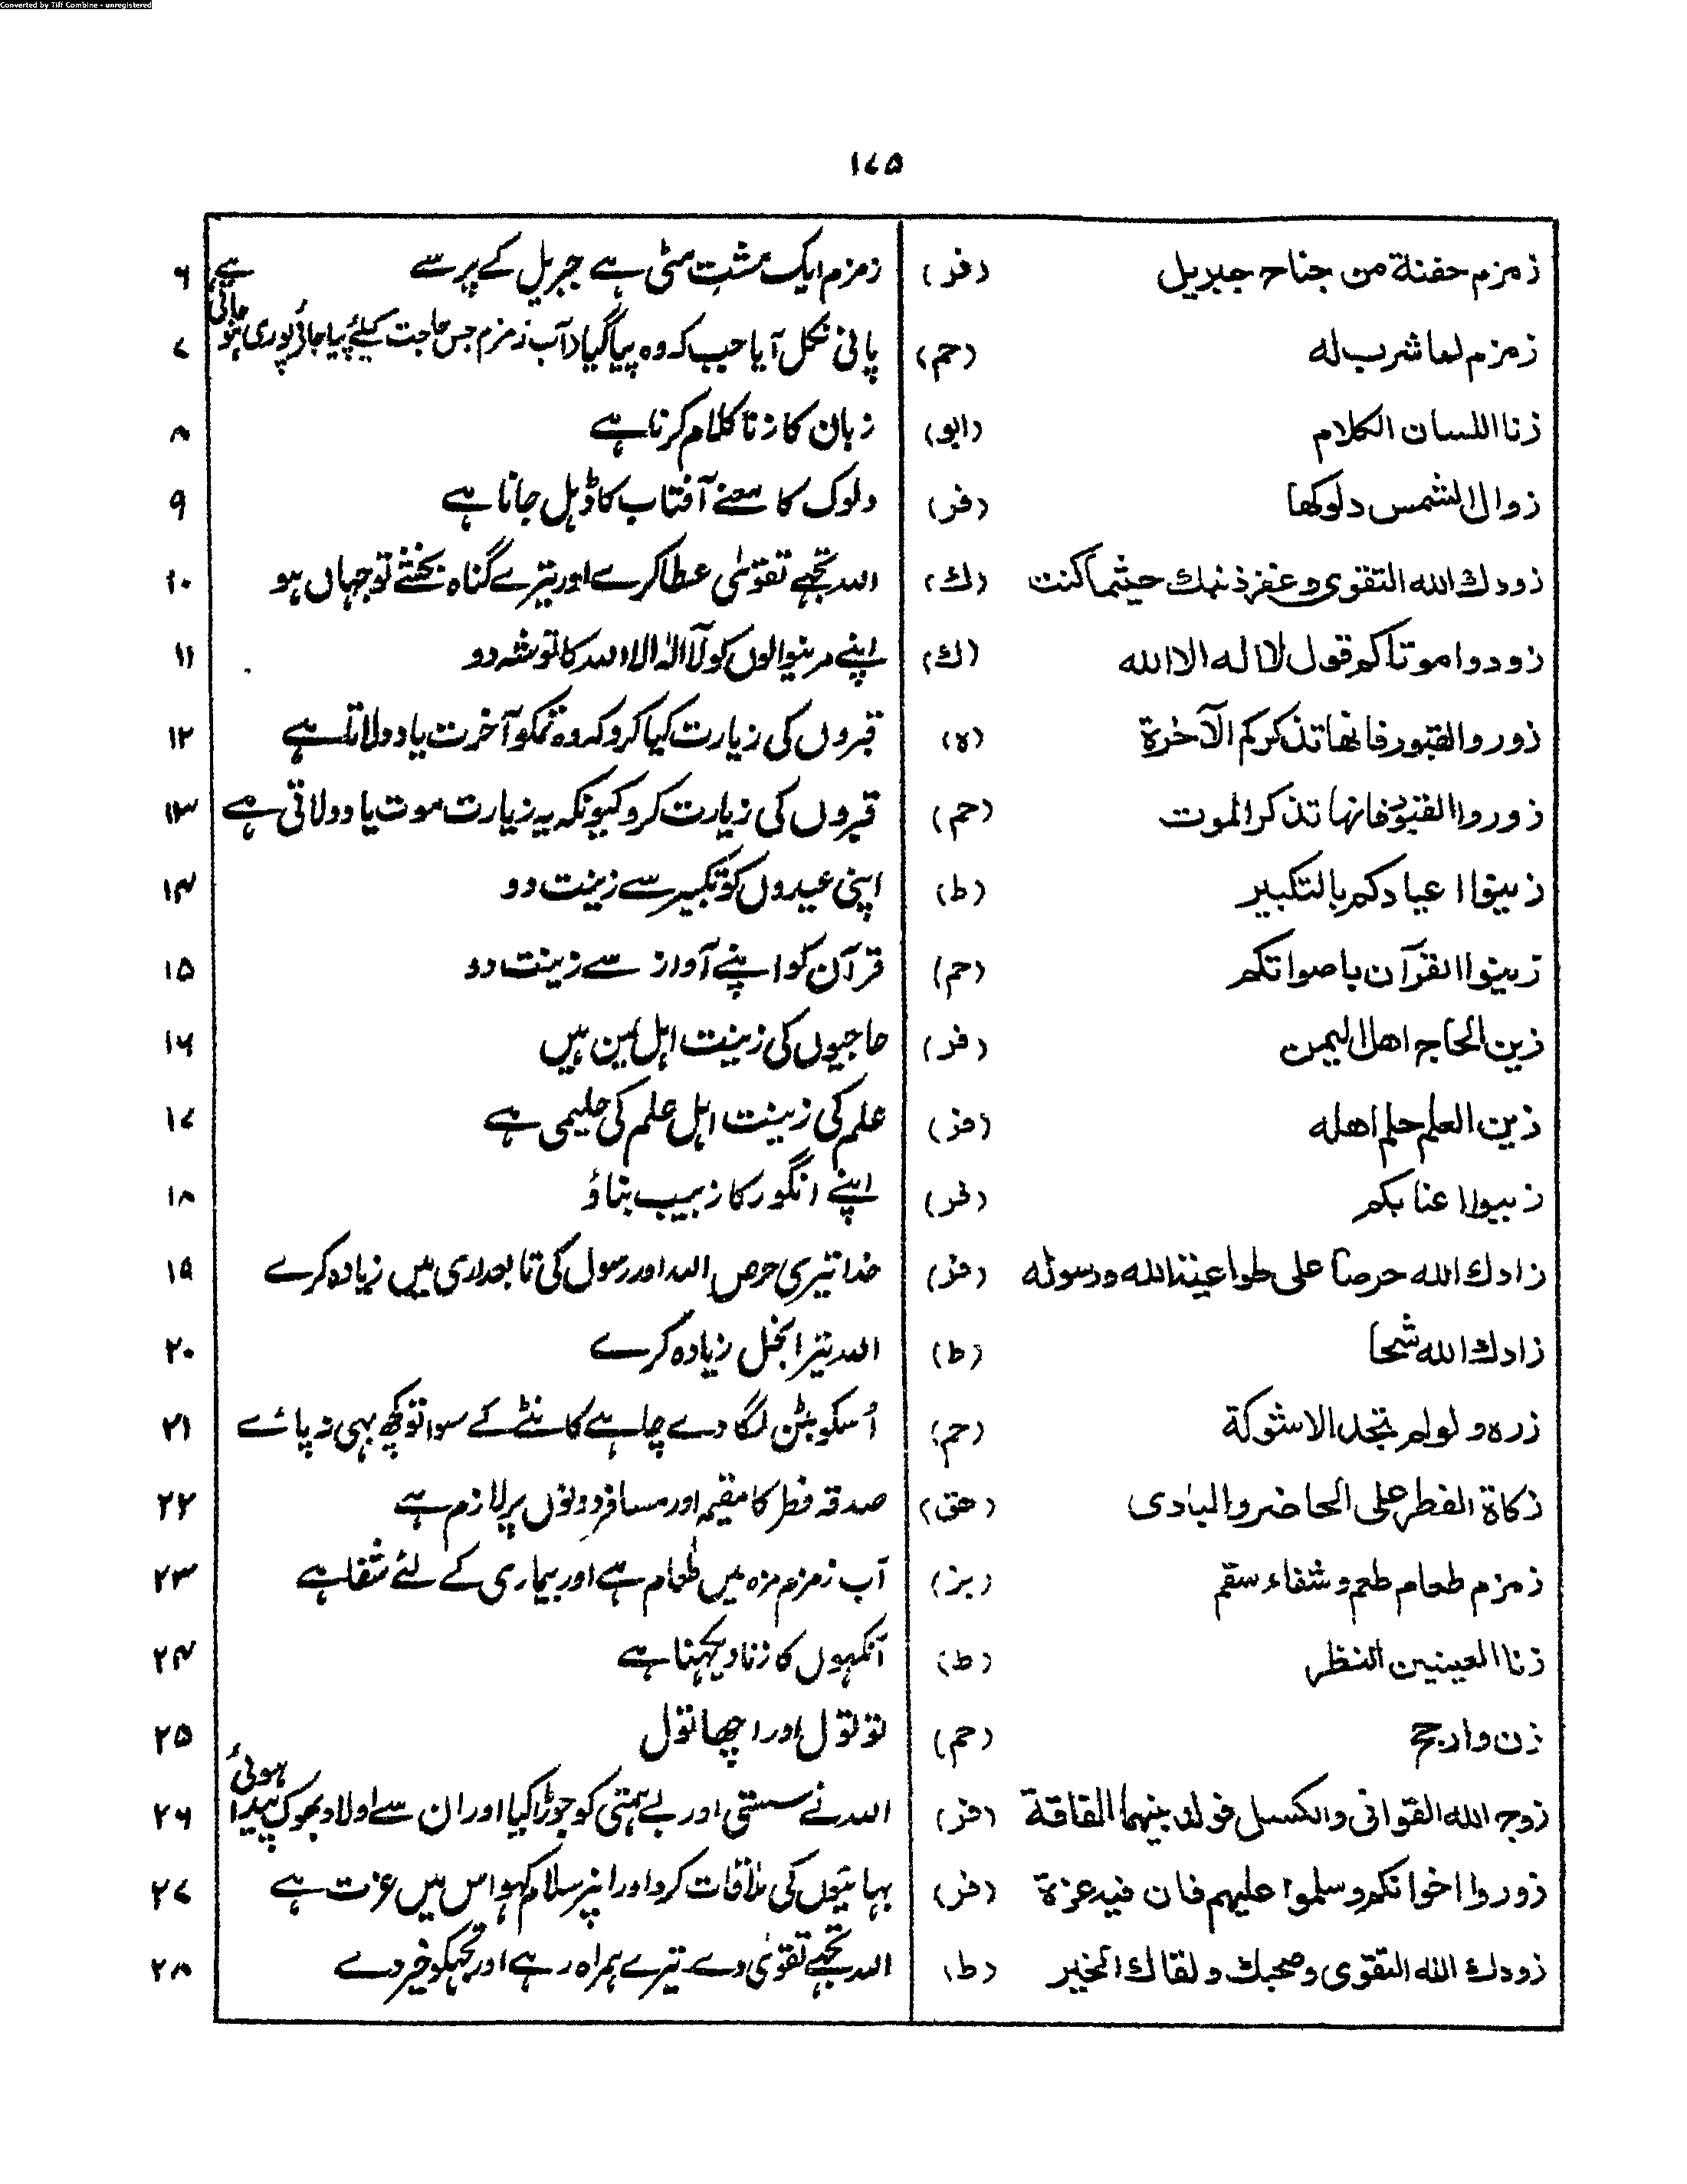 Converted by Tiff Combine - unregistered
۱۷۵
زمزم حفنة من جناح جبريل (فر) زمزم ایک مشت مٹی ہے جبریل کے پر سے ۶
زمزم لما شرب له (حم) پانی نکل آیا جب کہ وہ پیا گیا دآب زمزم جس حاجت کیلئے پیا جائے پوری ہو جاتی ہے ۷
زنا اللسان الکلام (ابو) زبان کا زنا کلام کرنا ہے ۸
زوال الشمس دلوکها (فر) دلوک کا معنے آفتاب کا ڈہل جانا ہے ۹
زودك الله التقوی وغفر ذنبك حیثما کنت (ك) اللہ تجہے تقوٰی عطا کرے اور تیرے گناہ بخشے تو جہاں ہو ۱۰
زودوا موتاکم قول لا اله الا الله (ك) اپنے مرنیوالوں کو لآ الٰہ الا اللہ کا توشہ دو ۱۱
زوروا القبور فانها تذکرکم الآخرة (ه) قبروں کی زیارت کیا کرو کہ وہ تمکو آخرت یاد دلاتا ہے ۱۲
زوروا القبور فانها تذکر الموت (حم) قبروں کی زیارت کرو کیونکہ یہ زیارت موت یاد دلاتی ہے ۱۳
زینوا اعیادکم بالتکبیر (ط) اپنی عیدوں کو تکبیر سے زینت دو ۱۴
زینوا القرآن باصواتکم (حم) قرآن کو اپنے آواز سے زینت دو ۱۵
زین الحاج اهل الیمن (فر) حاجیوں کی زینت اہل یمن ہیں ۱۶
زین العلم حلم اهله (فر) علم کی زینت اہل علم کی حلیمی ہے ۱۷
زببوا اعنابکم (فر) اپنے انگور کا زبیب بناؤ ۱۸
زادك الله حرصا علی طواعیة الله ورسوله (فر) خدا تیری حرص اللہ اور رسول کی تابعداری میں زیادہ کرے ۱۹
زادك الله شحا (ط) اللہ تیرا بخل زیادہ کرے ۲۰
زره ولو لم تجد الا شوکة (حم) اُسکو بٹن لگا دے چاہے کانٹے کے سوا تو کچھ بہی نہ پائے ۲۱
زکاة الفطر علی الحاضر والبادی (هق) صدقہ فطر کا مقیم اور مسافر دونوں پر لازم ہے ۲۲
زمزم طعام طعم وشفاء سقم (بز) آب زمزم مزہ میں طعام ہے اور بیماری کے لئے شفا ہے ۲۳
زنا العینین النظر (ط) آنکہوں کا زنا دیکہنا ہے ۲۴
زن وارجح (حم) تو تول اور اچھا تول ۲۵
زوج الله التوانی والکسل فولد بینهما الفاقة (فر) اللہ نے سستی اور بے ہمتی کو جوڑا کیا اور ان سے اولاد بھوک پیدا ہوئی ۲۶
زوروا اخوانکم وسلموا علیهم فان فیه عزة (فر) بہائیوں کی ملاقات کرو اور انپر سلام کہو اس میں عزت ہے ۲۷
زودك الله التقوی وصحبك ولقاك الخیر (ط) اللہ تجہے تقوٰی دے تیرے ہمراہ رہے اور تجہکو خیر دے ۲۸